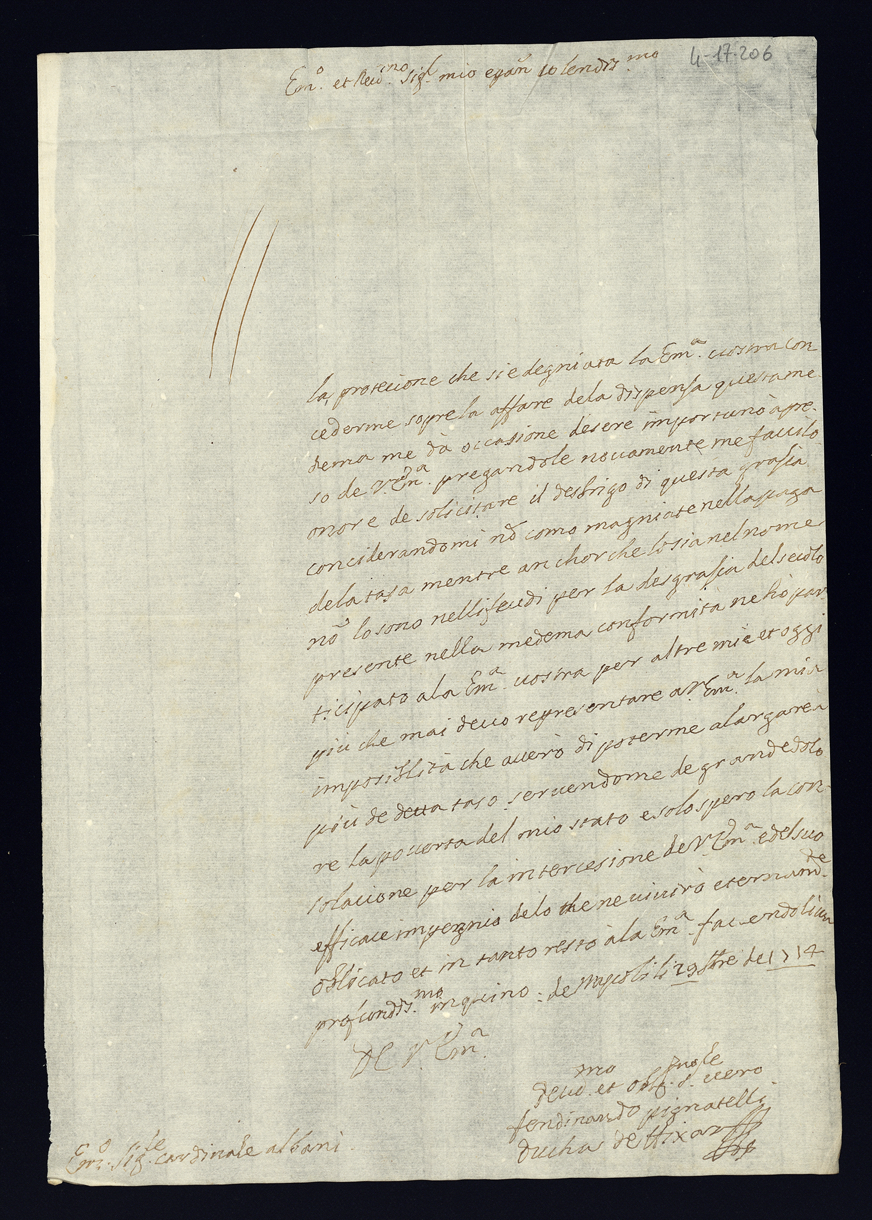 4-17.206
Em.º et Reu.mo Sig.r mio e pañ colendis.mo
la protecione che si e degniata la Em.a vostra con
cederme sopre la affare dela dispensa questa me
dema me dà occasione desere importunò apre-
so de V. Em.a pregandole novamente me facci lo
onore de solicitare il desbrigo di questa grasia
conciderandomi nõ como magniate nella paga
dela tasa mentre anchorche lo sia nel nome
nõ lo sono nelli feudi per la desgrasia del secolo
presente nella medema conformità ne hò par
ticipato ala Em.a vostra per altre mie et oggi
più che mai devo representare a V. Em.a la mia
imposiblità che averò di poterme alargare a
più de detta taso servendome de grande dolo
re la poverta del mio stato e solo spero la con-
solacione per la intercesione de V. Em.a e del suo
efficace impegnio delo che ne vivirò eternam.te
obblicato et in tanto resto à la Em.a facendoli un
profondis.mo inquino : de Napoli li 29 de 1714
De V. Em.a
devo.mo et obb. s. vero
ferdinando pignatelli
Duchas de Hixar
Em.º Sig.le cardinale albani